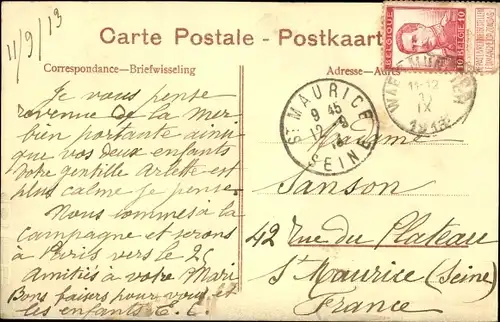 11/9/13
Carte Postale - Postkaart
Correspondance—Briefwisseling
Adresse—Adres
BELGIQUE
10 BELGIE 10
ST MAURICE
9 45
12 - 9
SEINE
11-12
11
IX
1913
Je vous pense
revenue de la mer
bien portante ainsi
que vos deux enfants
Votre gentille Arlette est
plus calme je pense-
Nous sommes à la
campagne et serons
à Paris vers le 25
Amitiés à votre Mari
Bons baisers pour vous et
les enfants E. C.
Madame
Sanson
42 Rue du Plateau
St Maurice (Seine)
France